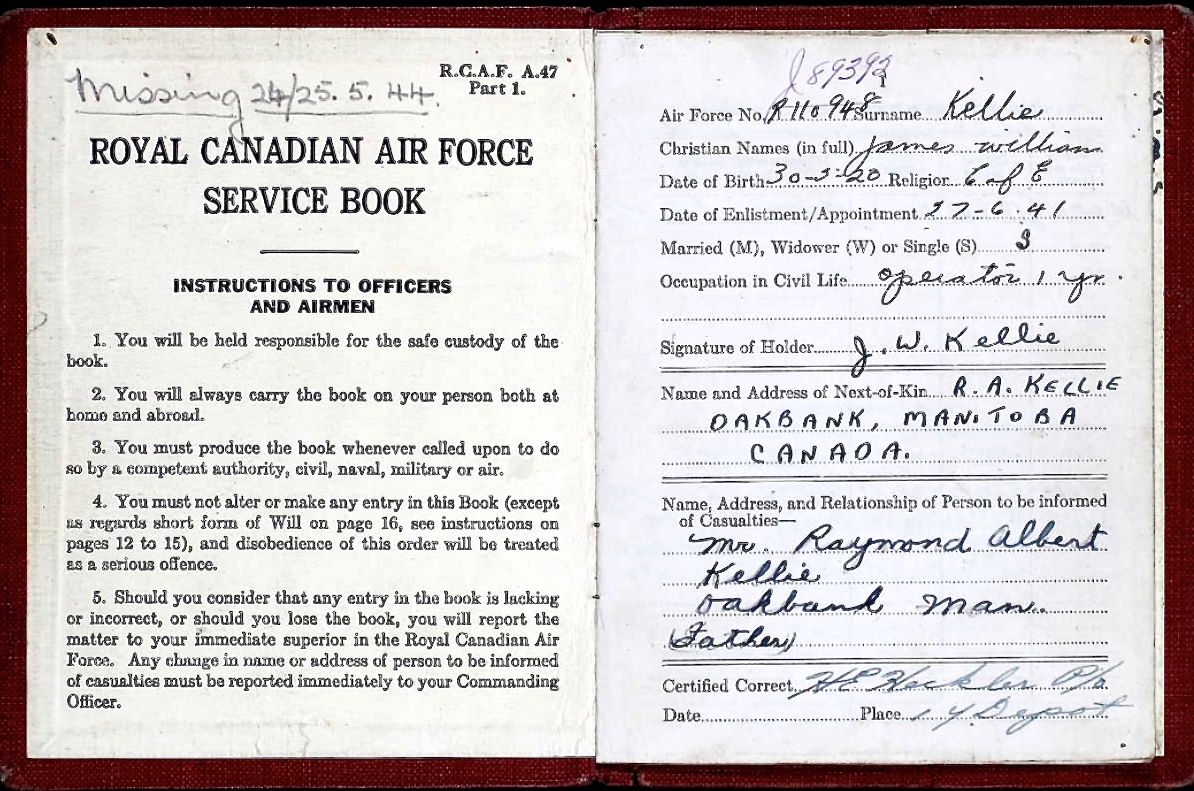 Missing 24/25. 5. 44.
R.C.A.F. A.47
Part 1.
ROYAL CANADIAN AIR FORCE
SERVICE BOOK
INSTRUCTIONS TO OFFICERS
AND AIRMEN
1. You will be held responsible for the safe custody of the
book.
2. You will always carry the book on your person both at
home and abroad.
3. You must produce the book whenever called upon to do
so by a competent authority, civil, naval, military or air.
4. You must not alter or make any entry in this Book (except
as regards short form of Will on page 16, see instructions on
pages 12 to 15), and disobedience of this order will be treated
as a serious offence.
5. Should you consider that any entry in the book is lacking
or incorrect, or should you lose the book, you will report the
matter to your immediate superior in the Royal Canadian Air
Force. Any change in name or address of person to be informed
of casualties must be reported immediately to your Commanding
Officer.
J 89392
Air Force No. R110948 Surname Kellie
Christian Names (in full) James william
Date of Birth 30-3-20 Religion C of E
Date of Enlistment/Appointment 27-6-41
Married (M), Widower (W) or Single (S) S
Occupation in Civil Life operator 1 yr.
Signature of Holder J. W. Kellie
Name and Address of Next-of-Kin R. A. KELLIE
OAKBANK, MANITOBA
CANADA.
Name, Address, and Relationship of Person to be informed
of Casualties—
Mr. Raymond Albert
Kellie
Oakbank Man.
(Father)
Certified Correct
Date Place Depot